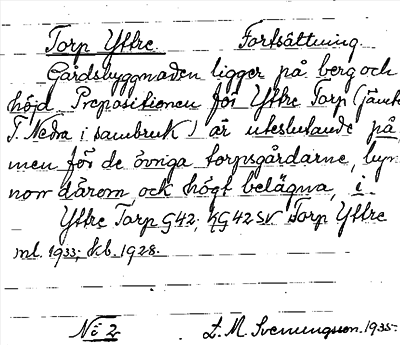 Torp Yttre. Fortsättning.
Gårdsbyggnaden ligger på berg och
höjd Prepositionen för Yttre Torp (jämte
T. Nedra i sambruk) är uteslutande på
men för de övriga torpsgårdarne, byn
norr därom, och högt belägna, i.
Yttre Torp G42; KG42SV Torp Yttre
ml. 1933; kb. 1928.
No 2 L. M. Svenungsson. 1935.